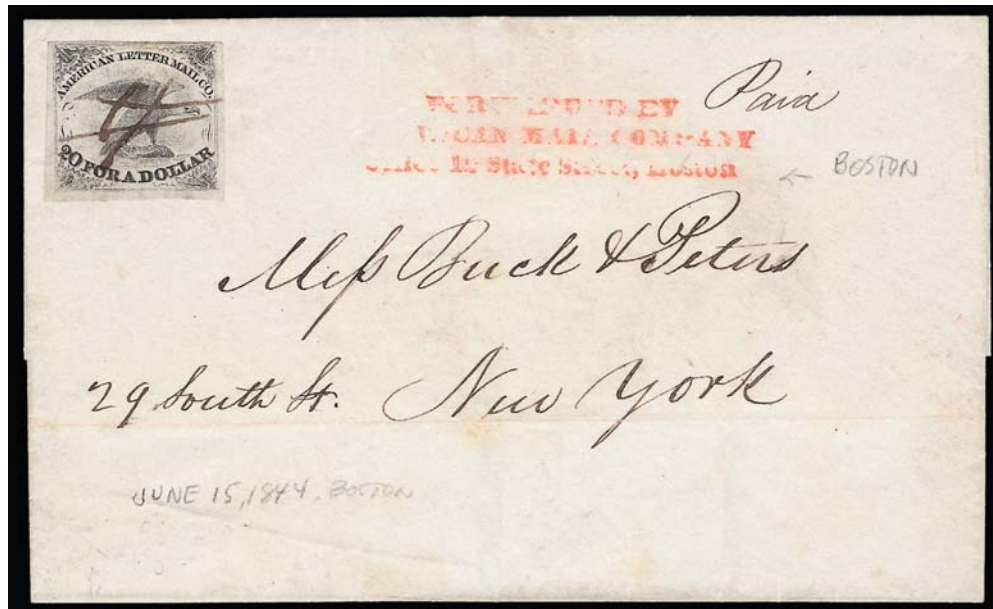 AMERICAN LETTER MAIL CO.
20 FOR A DOLLAR
Paid
FORWARDED BY
MAIL COMPANY
Office 12 State Street, Boston
← BOSTON
Mess Buck & Peters
29 South St. New York
JUNE 15, 1844. BOSTON